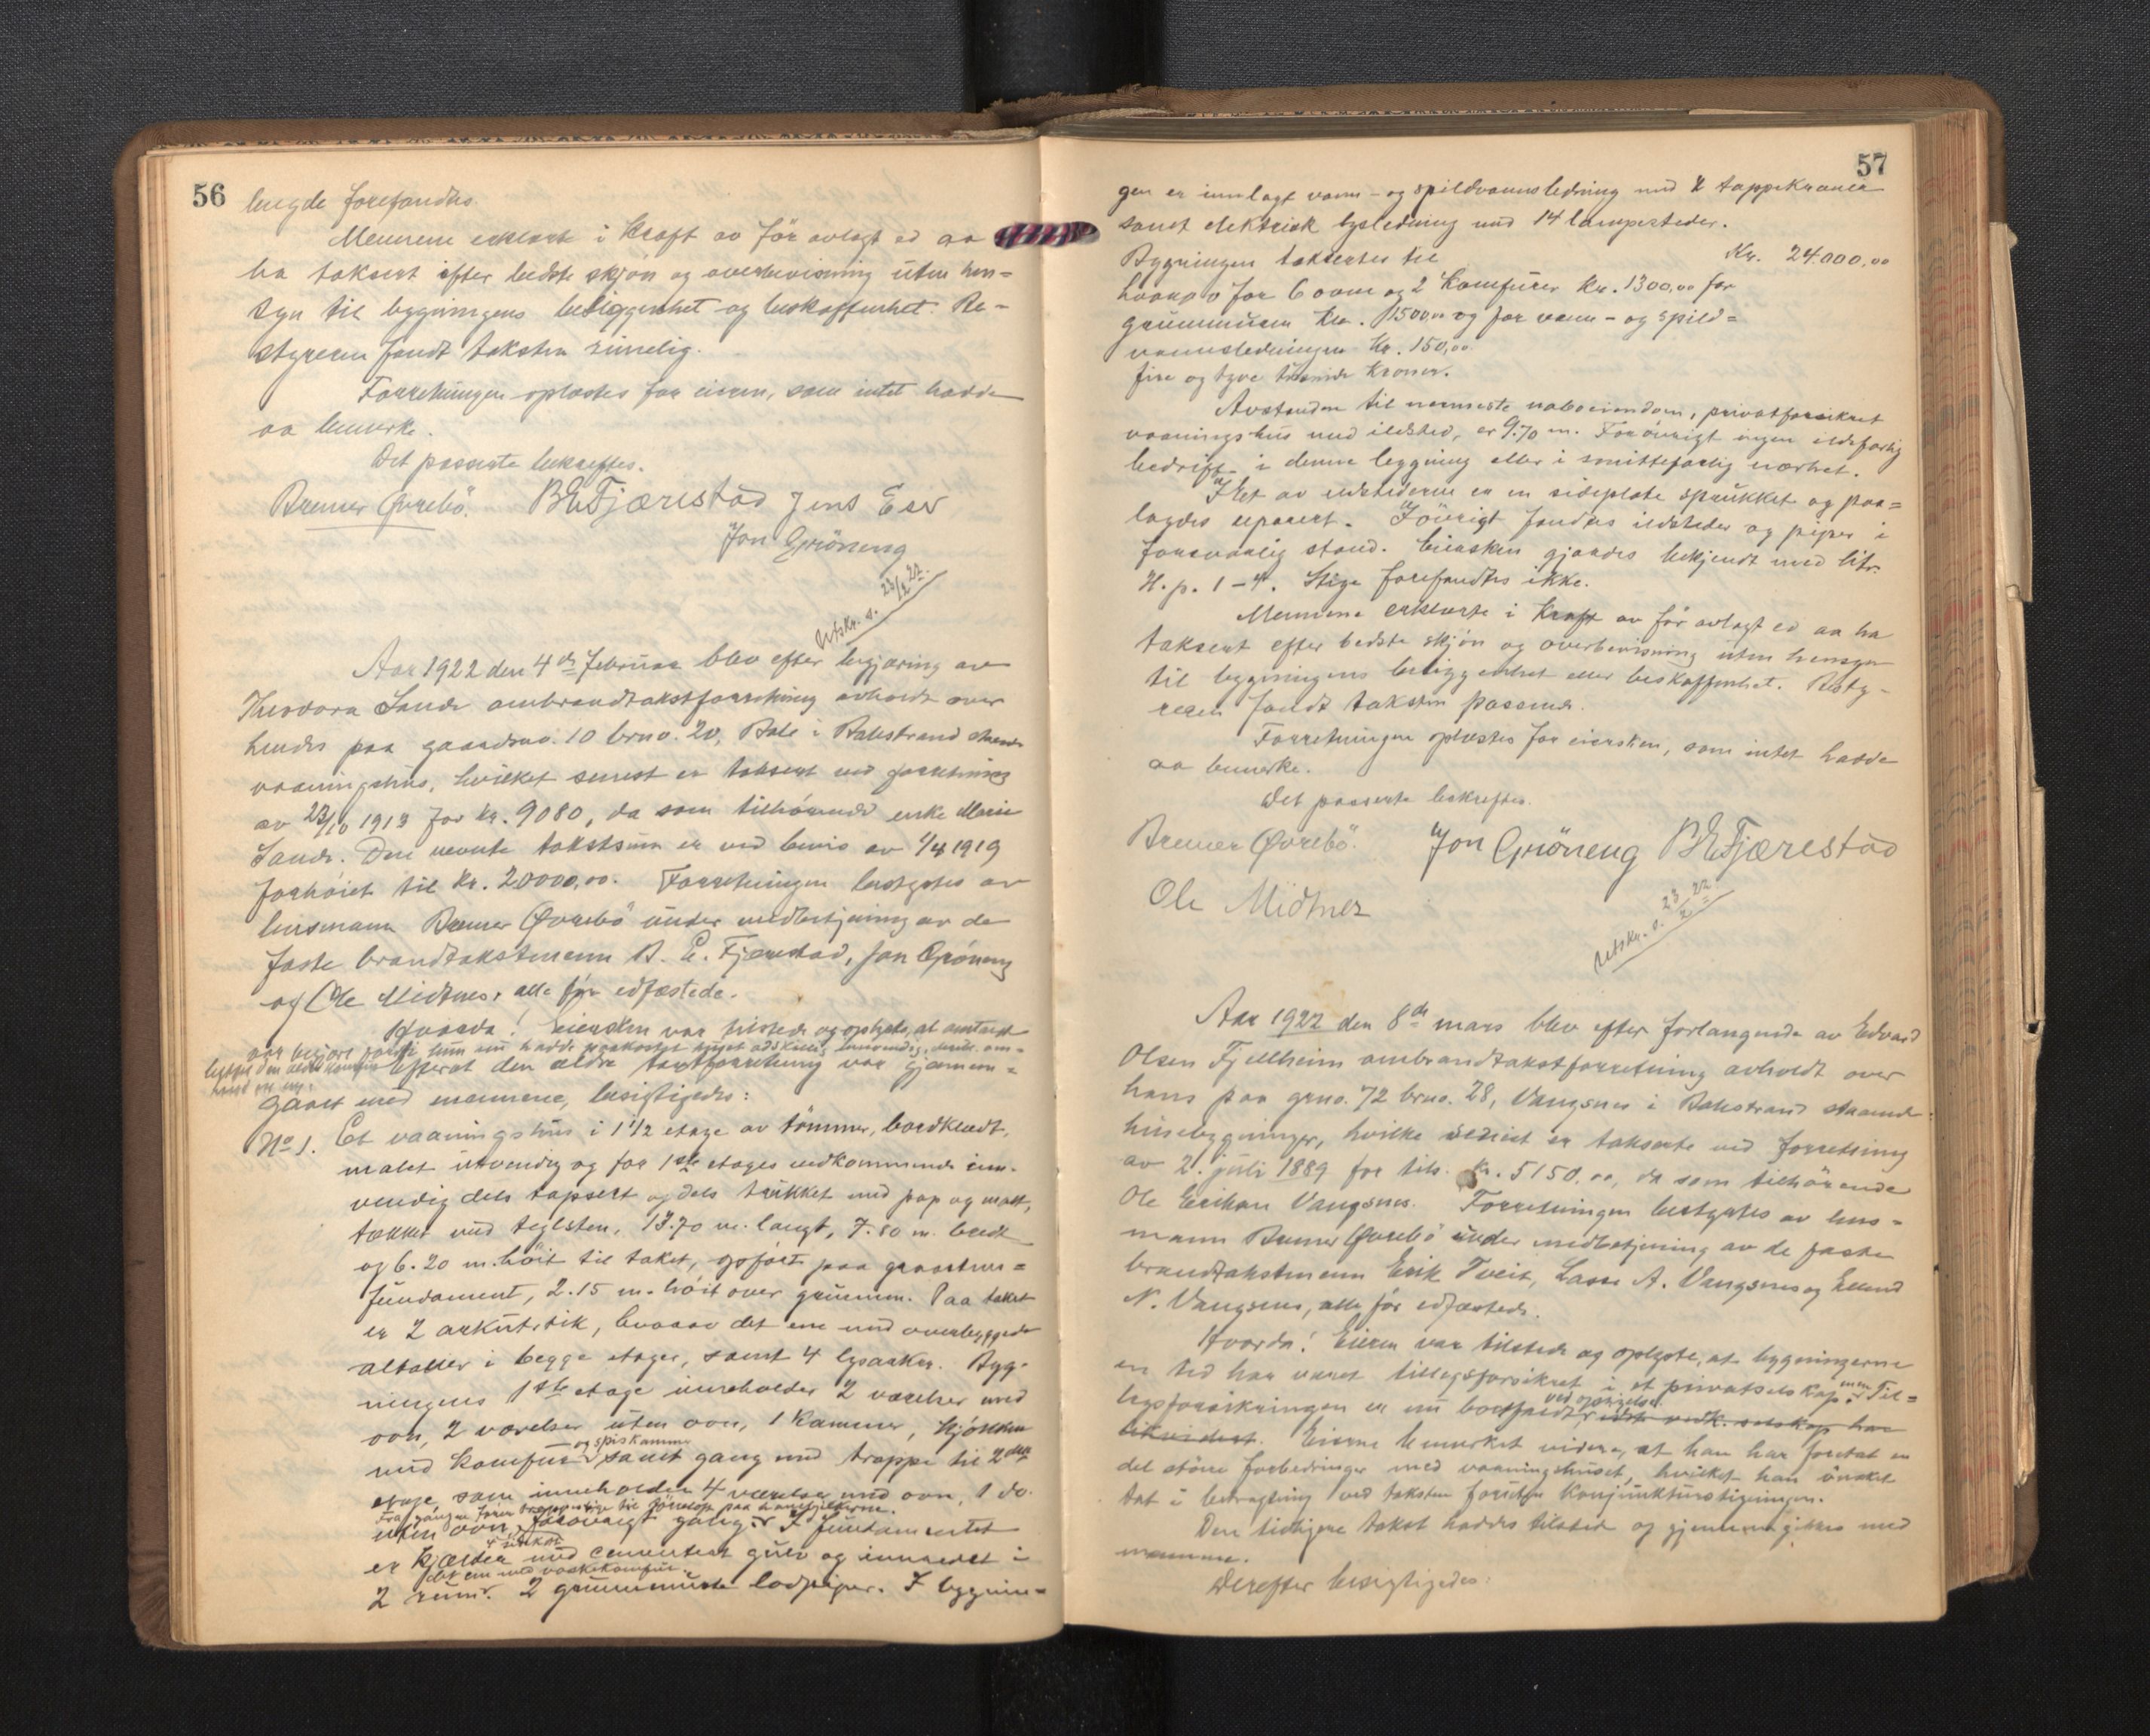 56
lengde forefandtes.
Mennene erklærte i Kraft av før avlagt ed aa
ha taksert efter bedste skjøn og overbevisning uten hen=
syn til bygningens beliggenhet og beskaffenhet. Be-
styreren fandt taksten rimelig.
Forretningen oplæstes for eieren, som intet hadde
aa bemerke.
Det passerte bekræftes.
Bremer Øvrebö. B E Fjærestad Jens Ese
Jon Gröneng
Utskr. s. 23/2 22.
Aar 1922 den 4de februar blev efter begjæring av
Theodora Sande ombrandtakstforretning avholdt over
hendes paa gaardsno. 10 brno. 20, Bale i Balestrand staaende
vaaningshus, hvilket senest er taksert ved forretning
av 23/10 1913 for kr. 9080, da som tilhørende enke Marie
Sande. Den nevnte takstsum er ved bevis av 1/4 1919
forhøiet til kr. 20000,00. Forretningen bestyrtes av
lensmann Bremer Øvrebö under medbetjening av de
faste brandtakstmenn B. E. Fjærestad, Jon Gröneng
og Ole Midtnes, alle før edfæstede.
Hvorda! Eiersken var tilstede og oplyste, at omtakst
var begjært fordi hun nu hadde paakostet huset adskillig innvendig,
Efterat den ældre takstforretning var gjennem=
gaaet med mennene, besigtigedes:
No 1. Et vaaningshus i 1 1/2 etage av tömmer, bordklædt,
malet utvendig og for 1ste etages vedkommende inn-
vendig dels tapsert og dels trukket med pap og malt,
tækket med teglsten, 13.70 m. langt, 7.80 m. bredt
og 6.20 m. höit til taket, opført paa graastens=
fundament, 2.15 m. höit over grunnen. Paa taket
er 2 arkutstik, hvorav det ene med overbyggede
altaner i begge etager, samt 4 lysarker. Byg-
ningens 1ste etage inneholder 2 værelser med
ovn, 2 værelser uten ovn, 1 Kammer, Kjökken
og spiskammer
med komfur samt gang med trappe til 2den
etage, som inneholder 4 værelser med ovn, 1 do.
Fra gangen fører trappestige til
uten ovn, forövrigt gang. I fundamentet
er kjælder med cementert gulv og innredet i
det ene med vaskekomfur.
2 rum. 2 grunnmurte lodpiper. I bygnin=
57
gen er innlagt vann- og spildvannsledning med 2 tappekraner
samt elektrisk lysledning med 14 lampesteder.
Bygningen takseres til Kr. 24.000,00
hvorav for 6 ovne og 2 Komfurer kr. 1300,00 for
grunnmuren Kr. 1500,00 og for vann- og spild=
vannsledningen Kr. 150,00.
fire og tyve tusinde Kroner.
Avstanden til nermeste naboeiendom, privatforsikret
vaaningshus med ildsted, er 9.70 m. Forövrigt ingen ildsfarlig
bedrift i denne bygning eller i smittefarlig nærhet.
I et av ildstederne er en sideplate sprukket og paa=
lagdes reparert. Iövrigt fandtes ildsteder og piper i
forsvarlig stand. Eiersken gjordes bekjendt med litr.
H. p. 1-4. Stige forefandtes ikke.
Mennene erklærte i Kraft av før avlagt ed aa ha
taksert efter bedste skjön og overbevisning uten hensyn
til bygningens beliggenhet eller beskaffenhet. Besty-
reren fandt taksten passende.
Forretningen oplæstes for eiersken, som intet hadde
aa bemerke.
Det passerte bekræftes.
Bremer Øvrebö. Jon Gröneng B E Fjærestad
Ole Midtnes
Utskr. s. 23/2 22.
Aar 1922 den 8de mars blev efter forlangende av Edvard
Olsen Fjellheim ombrandtakstforretning avholdt over
hans paa grno. 72 brno. 28, Vangsnes i Balestrand staaende
husebygninger, hvilke senest er takserte ved forretning
av 2. juli 1889 for tils. kr. 5150,00, da som tilhörende
Ole Eriksen Vangsnes. Forretningen bestyrtes av lens=
mann Bremer Øvrebö under medbetjening av de faste
brandtakstmenn Erik Tveit, Lasse A. Vangsnes og
N. Vangsnes, alle før edfæstede.
Hvorda! Eieren var tilstede og oplyste, at bygningerne
en tid har været tillegsforsikret i et privatselskap, men Til=
ved opsigelse.
legsforsikringen er nu bortfaldt idet vedk. selskap har
likvidert. Eieren bemerket videre, at han har foretat en
del större forbedringer med vaaningshuset, hvilket han önsket
tat i betragtning ved taksten foruten Konjunkturstigningen.
Den tidligere takst haddes tilstede og gjennemgikkes med
mennene.
Derefter besigtigedes: